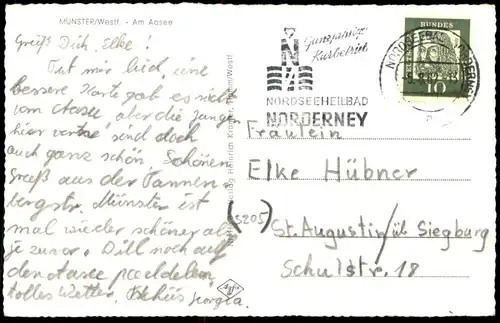 MÜNSTER/Westf. - Am Aasee
Greiß Dich, Elke!
Tut mir leid, eine
bessere Karte gab es nicht
vom Aasee, aber die Jungen
hier vorne! sind doch
auch ganz schön. Schönen
Greiß aus der Tannen-
bergstr. Münster ist
mal wieder schöner als
je zuvor. Will noch auf
den Aasee paddeln,
tolles Wetter. Tschüs Georgia.
Heinrich Krämer
Ganzjähriger
Kurbetrieb
NORDSEEHEILBAD
NORDERNEY
DEUTSCHE BUNDESPOST
10
Fräulein
Elke Hübner
(5205)
St. Augustin üb Siegburg
Schulstr. 18